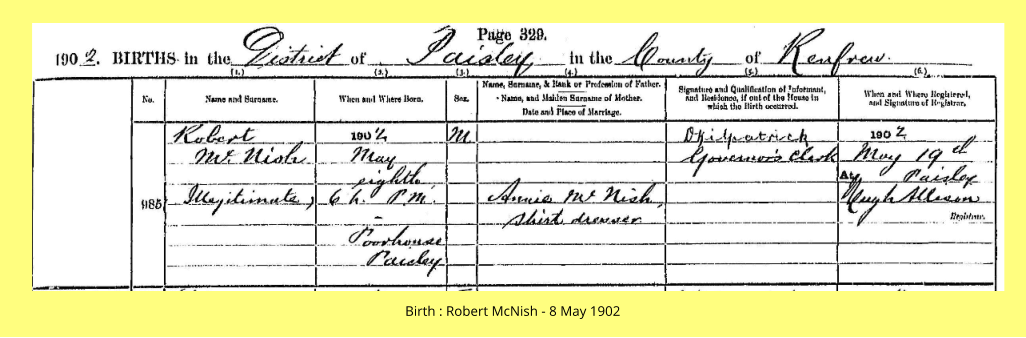 Page 329.
1902. BIRTHS in the District of Paisley in the County of Renfrew.
(1.) (2.) (3.) (4.) (5.) (6.)
No.
Name and Surname.
When and Where Born.
Sex.
Name, Surname, & Rank or Profession of Father.
Name, and Maiden Surname of Mother.
Date and Place of Marriage.
Signature and Qualification of Informant,
and Residence, if out of the House in
which the Birth occurred.
When and Where Registered,
and Signature of Registrar.
985
Robert
McNish
Illegitimate
1902
May
eighth
6 h. P.M.
Poorhouse
Paisley
M
Annie McNish,
Shirt dresser
Kilpatrick
Governor's Clerk
1902
May 19th
At Paisley
Hugh Allison
Registrar.
Birth : Robert McNish - 8 May 1902